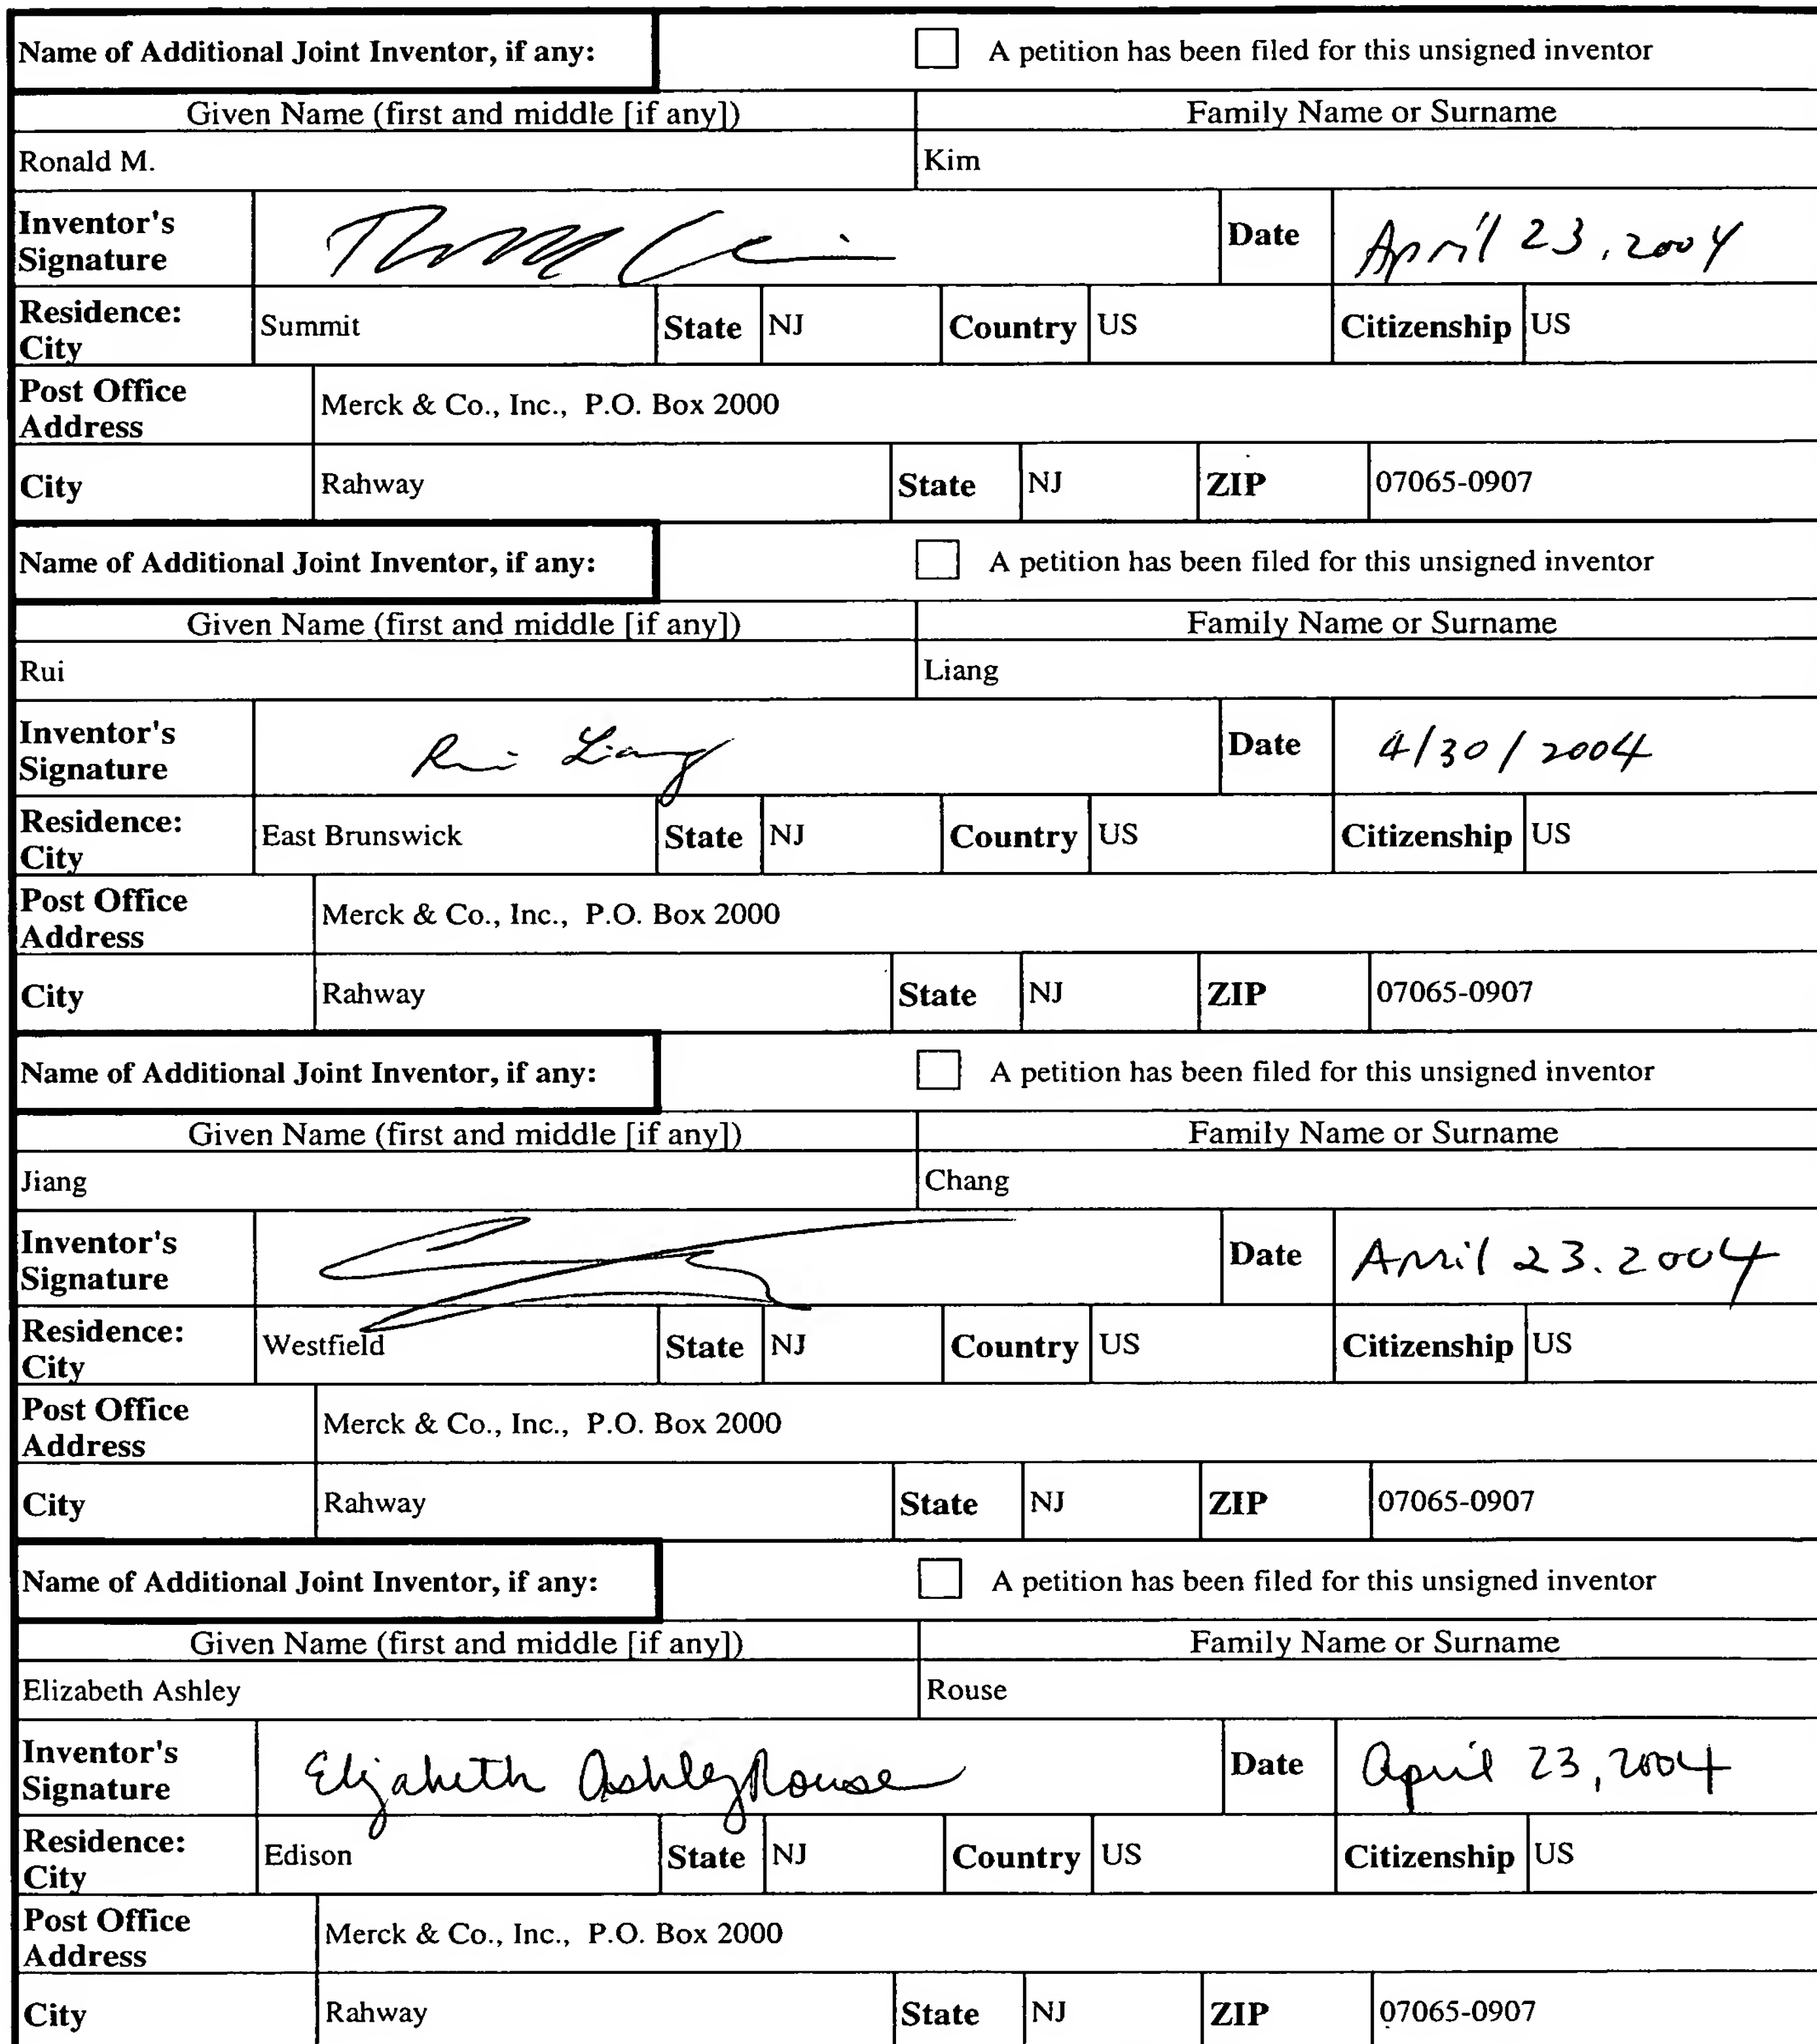 Name of Additional Joint Inventor, if any: A petition has been filed for this unsigned inventor
Given Name (first and middle [if any]) Family Name or Surname
Ronald M. Kim
Inventor's Signature Date April 23, 2004
Residence: City Summit State NJ Country US Citizenship US
Post Office Address Merck & Co., Inc., P.O. Box 2000
City Rahway State NJ ZIP 07065-0907
Name of Additional Joint Inventor, if any: A petition has been filed for this unsigned inventor
Given Name (first and middle [if any]) Family Name or Surname
Rui Liang
Inventor's Signature Rui Liang Date 4/30/2004
Residence: City East Brunswick State NJ Country US Citizenship US
Post Office Address Merck & Co., Inc., P.O. Box 2000
City Rahway State NJ ZIP 07065-0907
Name of Additional Joint Inventor, if any: A petition has been filed for this unsigned inventor
Given Name (first and middle [if any]) Family Name or Surname
Jiang Chang
Inventor's Signature Date April 23.2004
Residence: City Westfield State NJ Country US Citizenship US
Post Office Address Merck & Co., Inc., P.O. Box 2000
City Rahway State NJ ZIP 07065-0907
Name of Additional Joint Inventor, if any: A petition has been filed for this unsigned inventor
Given Name (first and middle [if any]) Family Name or Surname
Elizabeth Ashley Rouse
Inventor's Signature Elizabeth Ashley Rouse Date April 23, 2004
Residence: City Edison State NJ Country US Citizenship US
Post Office Address Merck & Co., Inc., P.O. Box 2000
City Rahway State NJ ZIP 07065-0907